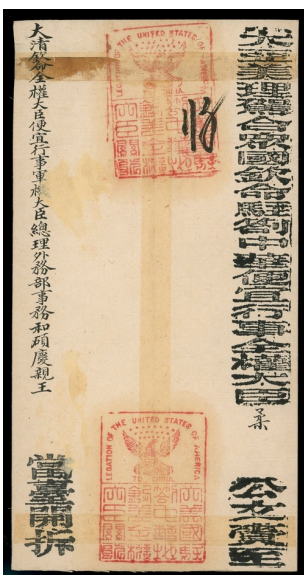 大亞美理駕合眾國欽命駐劄中華便宜行事全權大臣柔
公文賫至
LEGATION OF THE UNITED STATES OF AMERICA.
TO CHINA
LEGATION OF THE UNITED STATES OF AMERICA.
TO CHINA
大清欽命全權大臣便宜行事軍機大臣總理外務部事務和碩慶親王
當臺開拆